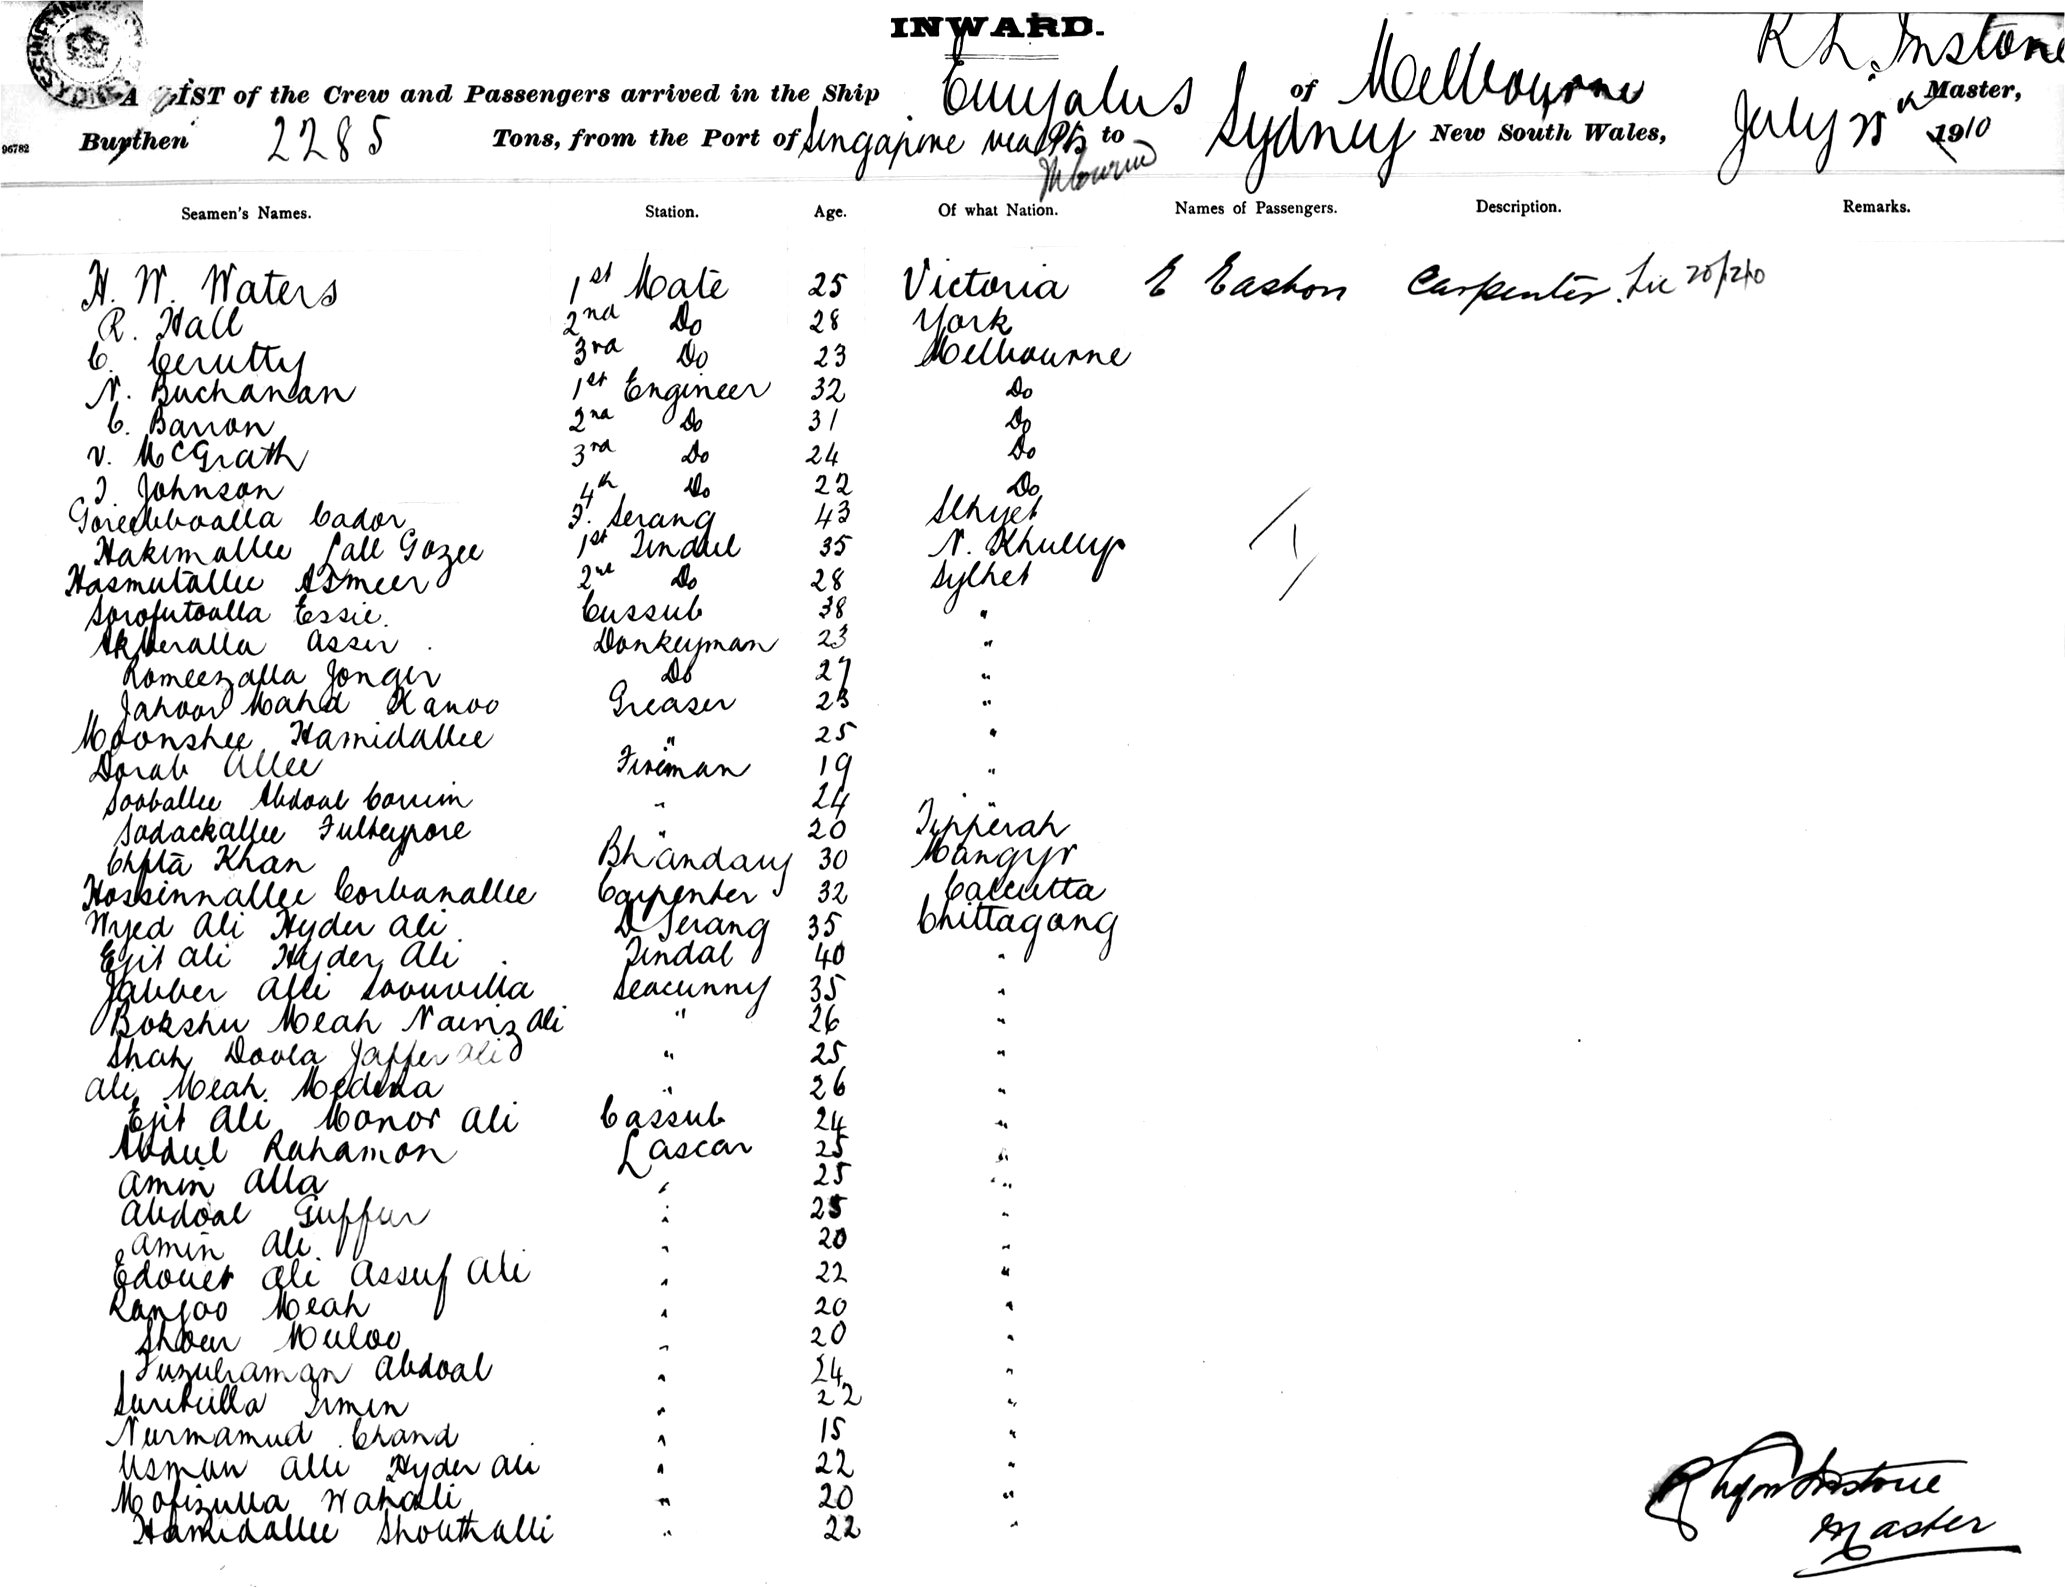 INWARD.
R L. Instone
A LIST of the Crew and Passengers arrived in the Ship Euryalus of Melbourne Master,
96782 Burthen 2285 Tons, from the Port of Singapore via Pts to Sydney New South Wales, July 25th 1910
Melbourne
Seamen's Names. Station. Age. Of what Nation. Names of Passengers. Description. Remarks.
H. W. Waters 1st Mate 25 Victoria E Eashon Carpenter. Lic 20/12/10
R. Hall 2nd Do 28 York
C. Cerutty 3rd Do 23 Melbourne
N. Buchanan 1st Engineer 32 Do
C. Barron 2nd Do 31 Do
V. McGrath 3rd Do 24 Do
J. Johnson 4th Do 22 Do
Cador F. Serang 43
Hakimallee Lall Gazee 1st Tindal 35 N.
Hasmutallee Asmeer 2nd Do 28 Sylhet
Sorofutoalla Essie. Cussub 38 "
Akberalla Asser Donkeyman 23 "
Romeezalla Jonger Do 27 "
Jahoor Mahd Kanoo Greaser 23 "
Moonshee Hamidallee " 25 "
Dorab Allee Fireman 19 "
Sooballee Abdoal Corrim " 24 "
Sadackallee Fulteypore " 20 Tipperah
Khan Bhandary 30 Mangyr
Hossinnallee Corbanallee Carpenter 32 Calcutta
Wyed Ali Hyder Ali D Serang 35 Chittagong
Ejit Ali Hyder Ali Tindal 40 "
Jabber Alli Seacunny 35 "
Bokshu Meah Naimz Ali " 26 "
Shah Doola Jaffer Ali " 25 "
Ali Meah Medina " 26 "
Ejit Ali Monor Ali Cassub 24 "
Abdul Rahamon Lascar 25 "
Amin Alla " 25 "
Abdoal Guffur " 25 "
Amin Ali " 20 "
Edouet Ali Assuf Ali " 22 "
Ranjoo Meah " 20 "
Sheer Muloo " 20 "
Fuzuhaman Abdoal " 24 "
Suritulla Irmin " 22 "
Nurmamud Chand " 15 "
Usman Alli Hyder Ali " 22 "
Mofizulla Wahali " 20 "
Hamidallee Shouthalli " 22 "
Instone
Master